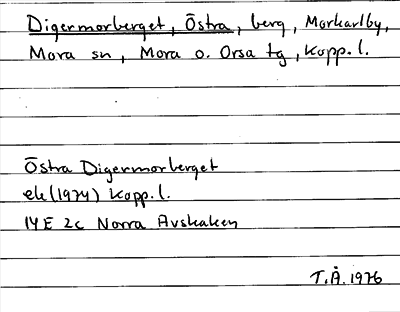 Digermorberget, Östra, berg, Morkarlby,
Mora sn, Mora o. Orsa tg, Kopp.l.
Östra Digermorberget
ek(1974) Kopp.l.
14E 2c Norra Avskaken
T.Å. 1976